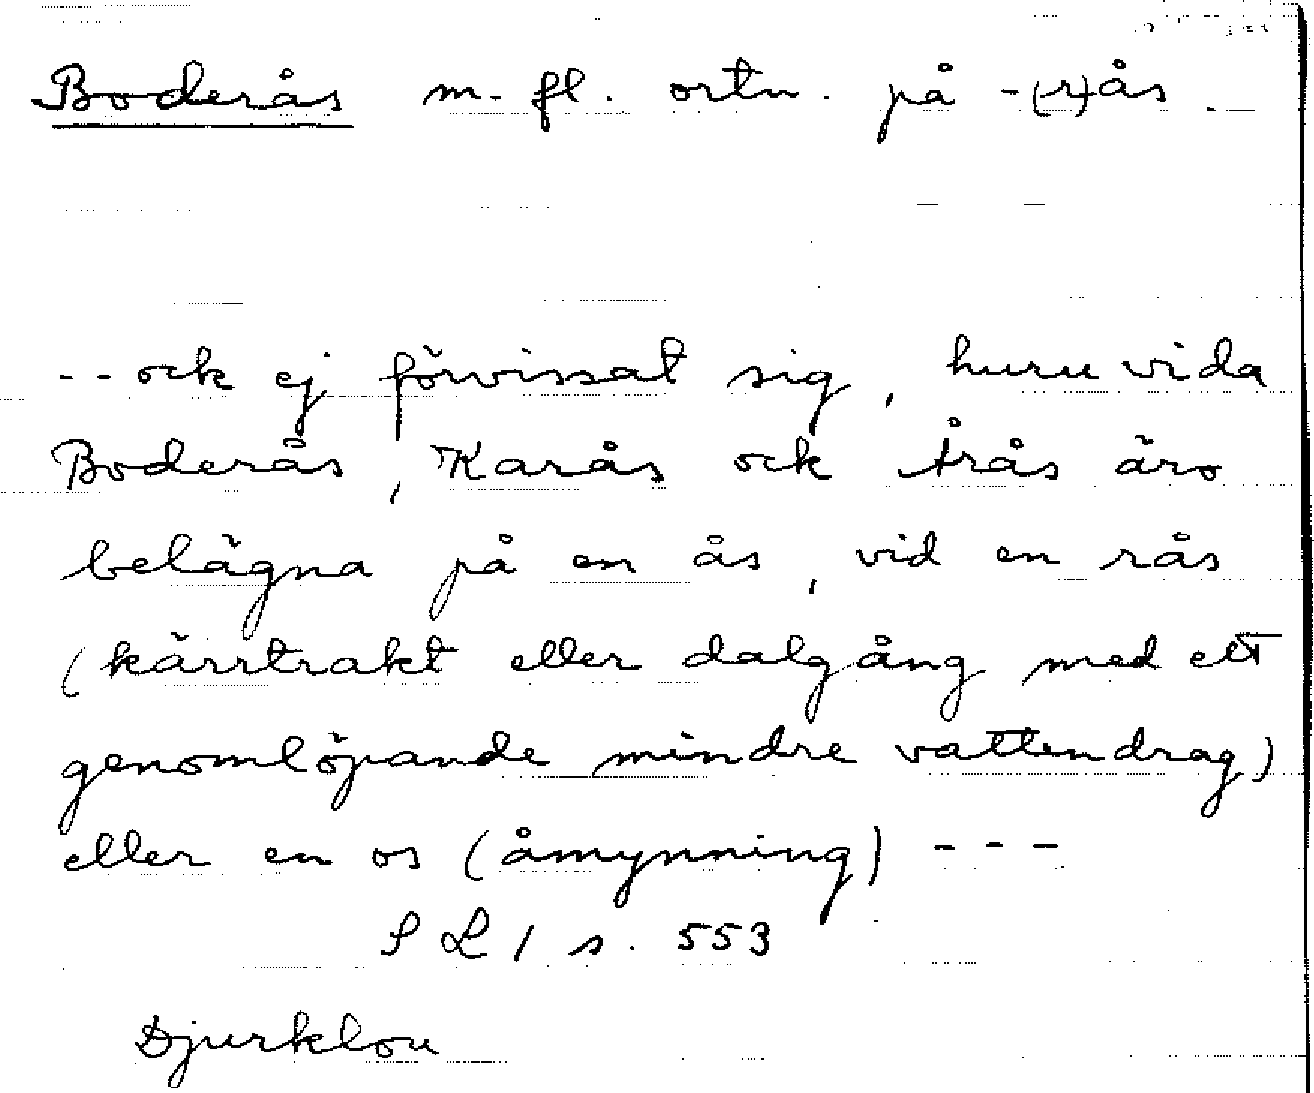 Boderås m.fl. ortn. på -(r)ås.
--ock ej förvissat sig, huru vida
Boderås, Karås ock Årås äro
belägna på en ås, vid en rås
(kärrtrakt eller dalgång med ett
genomlöpande mindre vattendrag)
eller en os (åmynning) ---
SL 1 s. 553
Djurklou